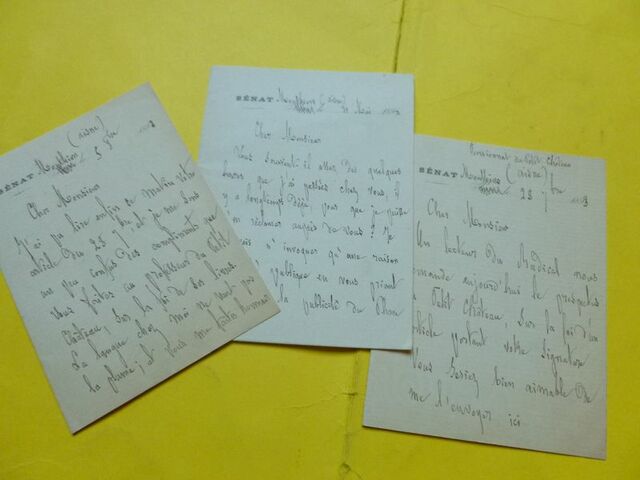 SÉNAT
(Aisne)
5
Cher Monsieur
J'ai pu lire enfin ce matin votre
article du 25 7bre et je me sens
un peu confus des compliments que
vous faites au professeur du Petit
Château, sur la foi de ses livres.
La langue chez moi ne vaut pas
la plume; et vous me faites
SÉNAT
(Aisne)
Mai
Cher Monsieur
Vous souvient-il assez des quelques
heures que j'ai passées chez vous, il
y a longtemps déjà, pour que je puisse
m'en réclamer auprès de vous? Je
puis invoquer qu'une raison
publique en vous priant
la publicité du
Pensionnat du Petit Château
SÉNAT
(Aisne)
25 7bre
Cher Monsieur
Un lecteur du Radical nous
demande aujourd'hui le prospectus
du Petit Château, sur la foi d'un
article portant votre signature
Vous seriez bien aimable de
me l'envoyer ici